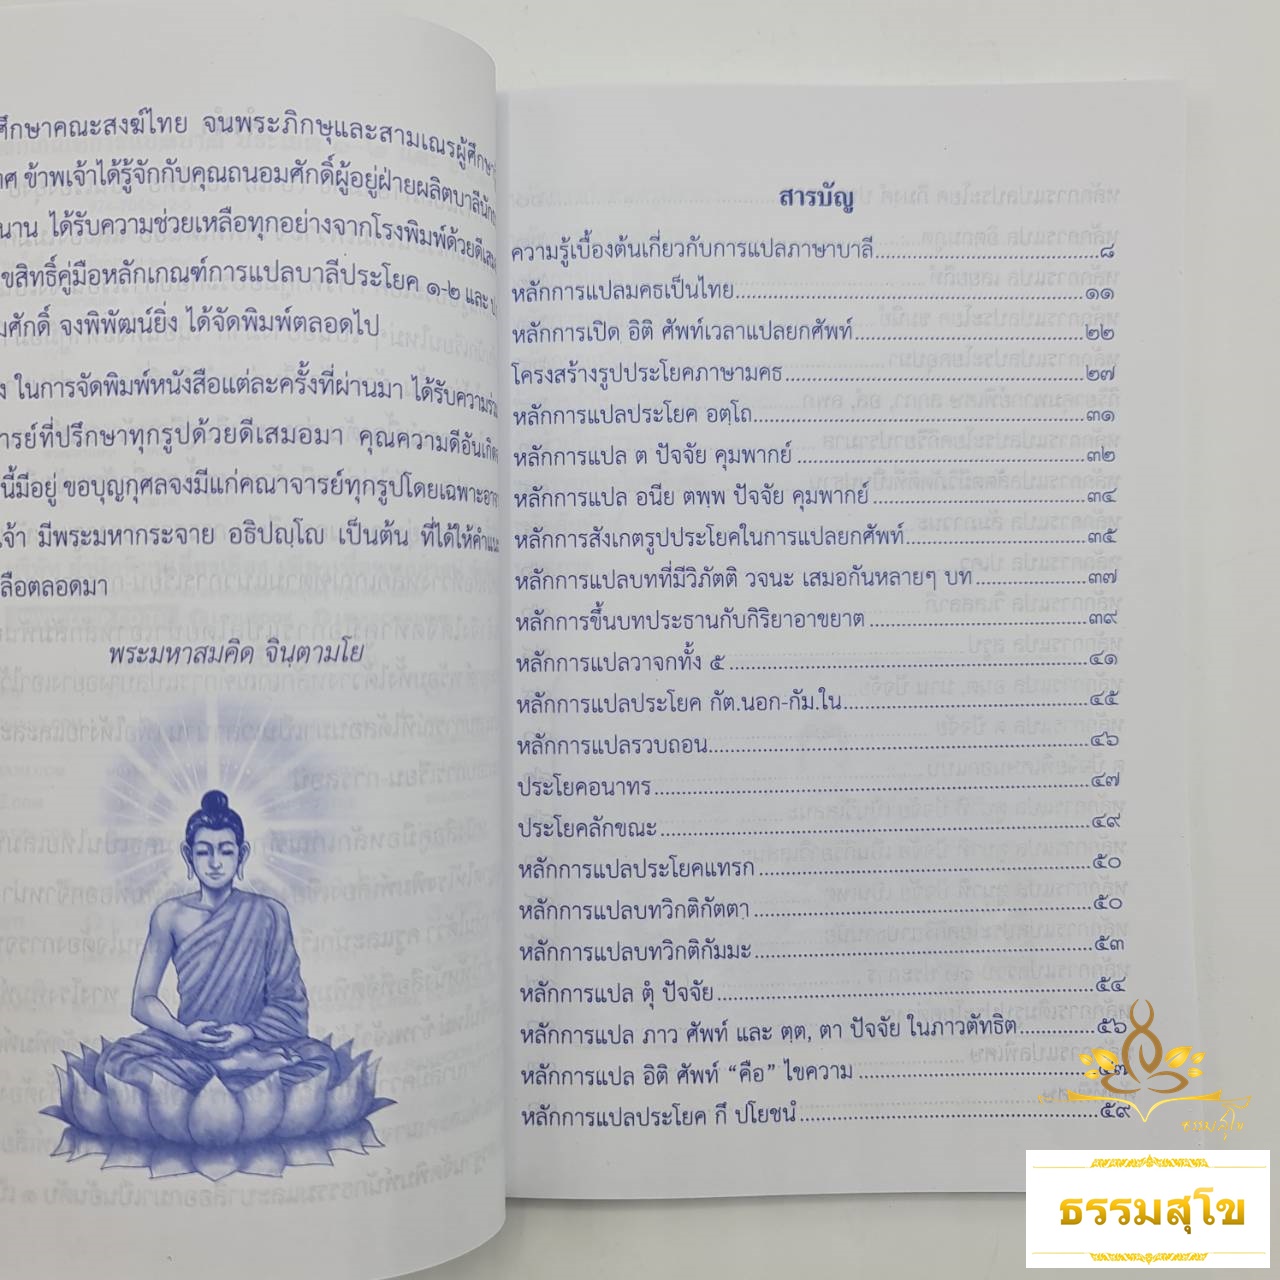 ศึกษาคณะสงฆ์ไทย จนพระภิกษุและสามเณรผู้ศึกษา
ศ ข้าพเจ้าได้รู้จักกับคุณถนอมศักดิ์ผู้อยู่ฝ่ายผลิตบาลีนัก
นาน ได้รับความช่วยเหลือทุกอย่างจากโรงพิมพ์ด้วยดีเสม
ขสิทธิ์คู่มือหลักเกณฑ์การแปลบาลีประโยค ๑-๒ และ ป
มศักดิ์ จงพิพัฒน์ยิ่ง ได้จัดพิมพ์ตลอดไป
ง ในการจัดพิมพ์หนังสือแต่ละครั้งที่ผ่านมา ได้รับความร่ว
ารย์ที่ปรึกษาทุกรูปด้วยดีเสมอมา คุณความดีอันเกิด
นี้มีอยู่ ขอบุญกุศลจงมีแก่คณาจารย์ทุกรูปโดยเฉพาะอา
เจ้า มีพระมหากระจาย อธิปญฺโญ เป็นต้น ที่ได้ให้คำแน
ลือตลอดมา
พระมหาสมคิด จินฺตามโย
สารบัญ
ความรู้เบื้องต้นเกี่ยวกับการแปลภาษาบาลี ๘
หลักการแปลมคธเป็นไทย ๑๑
หลักการเปิด อิติ ศัพท์เวลาแปลยกศัพท์ ๒๒
โครงสร้างรูปประโยคภาษามคธ ๒๗
หลักการแปลประโยค อตฺโถ ๓๑
หลักการแปล ต ปัจจัย คุมพากย์ ๓๒
หลักการแปล อนีย ตพฺพ ปัจจัย คุมพากย์ ๓๔
หลักการสังเกตรูปประโยคในการแปลยกศัพท์ ๓๕
หลักการแปลบทที่มีวิภัตติ วจนะ เสมอกันหลายๆ บท ๓๗
หลักการขึ้นบทประธานกับกิริยาอาขยาต ๓๙
หลักการแปลวาจกทั้ง ๕ ๔๑
หลักการแปลประโยค กัต.นอก-กัม.ใน ๔๕
หลักการแปลรวบถอน ๔๖
ประโยคอนาทร ๔๗
ประโยคลักขณะ ๔๙
หลักการแปลประโยคแทรก ๕๐
หลักการแปลบทวิกติกัตตา ๕๐
หลักการแปลบทวิกติกัมมะ ๕๓
หลักการแปล ตุํ ปัจจัย ๕๔
หลักการแปล ภาว ศัพท์ และ ตฺต, ตา ปัจจัย ในภาวตัทธิต ๕๖
หลักการแปล อิติ ศัพท์ “คือ” ไขความ ๕๗
หลักการแปลประโยค กึ ปโยชนํ ๕๙
ธรรมสุโข
ธรรมสุโข